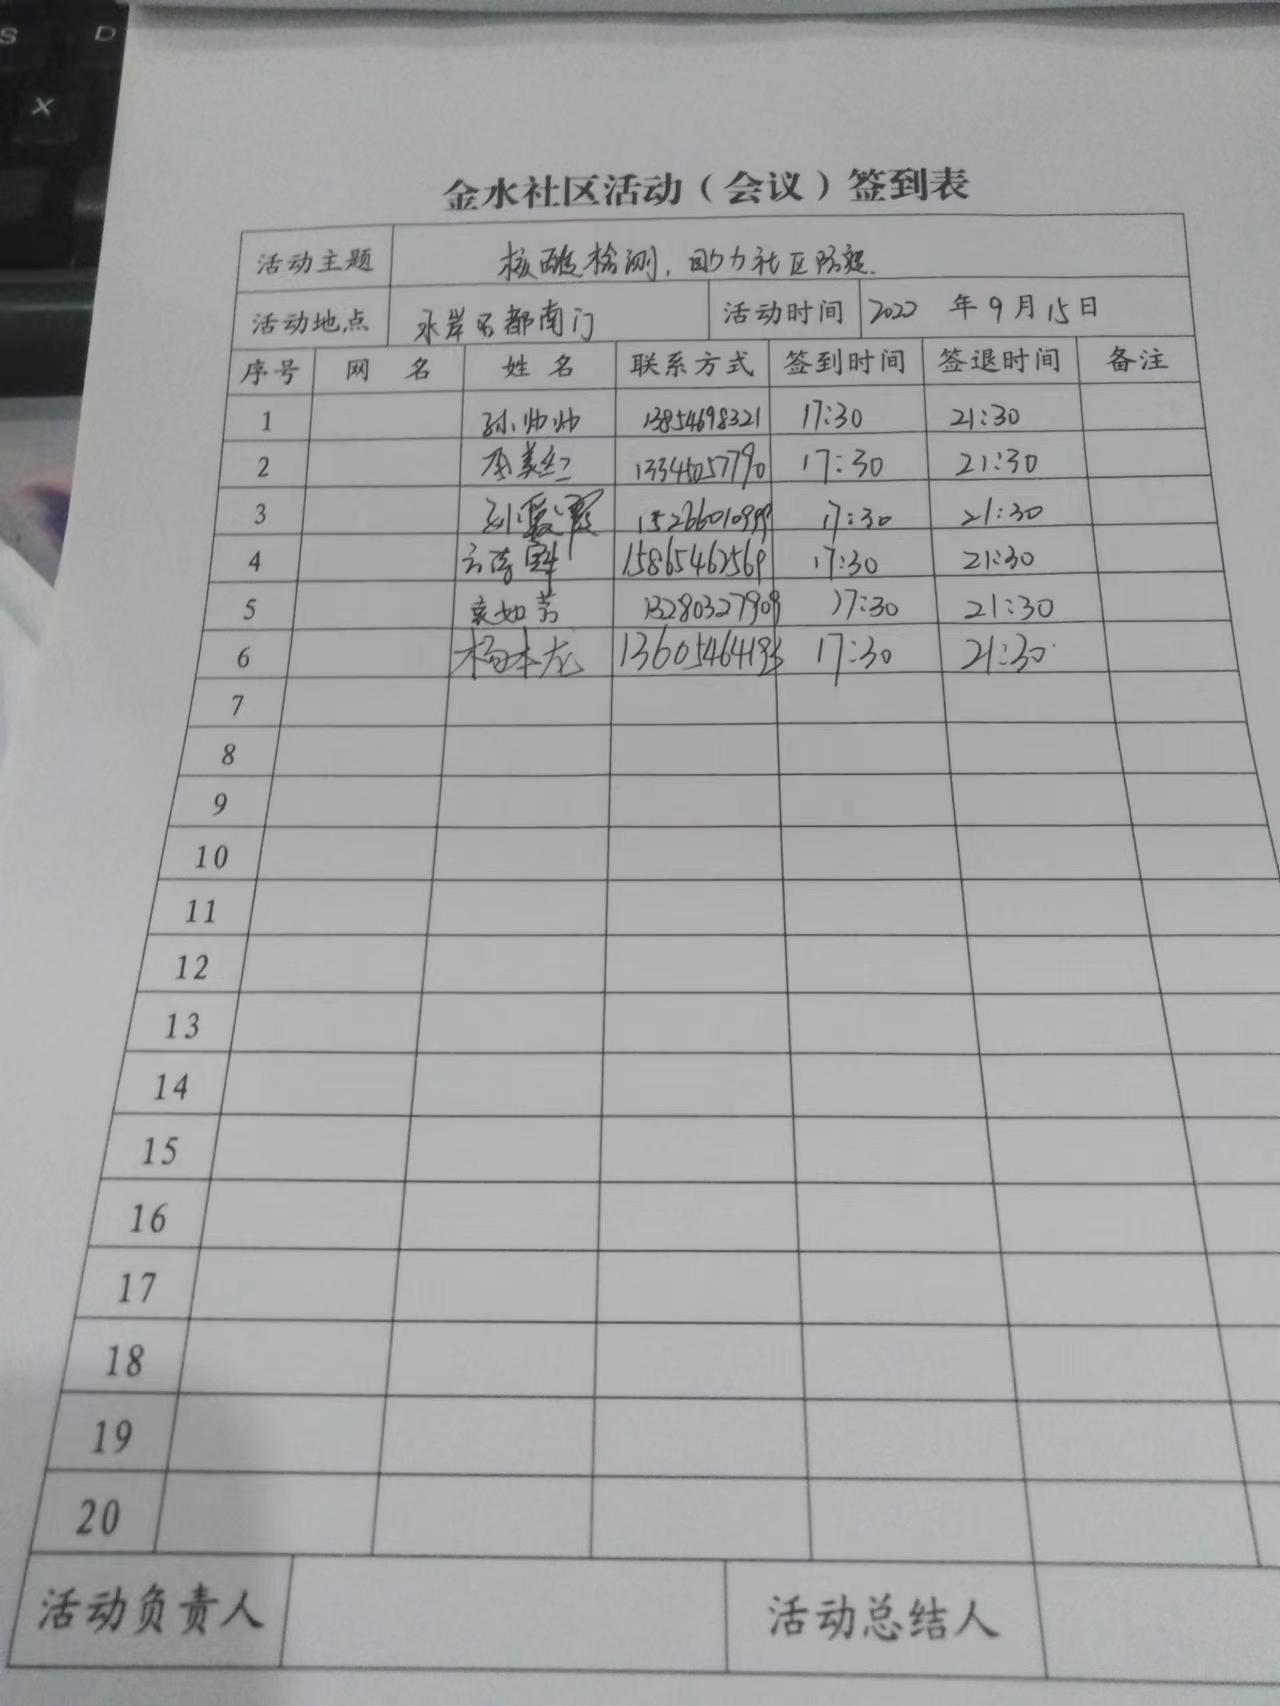 S D
X
金水社区活动（会议）签到表
活动主题 核酸检测，助力社区防疫.
活动地点 水岸名都南门 活动时间 2022 年 9 月 15 日
序号 网 名 姓 名 联系方式 签到时间 签退时间 备注
1 孙帅帅 13854698321 17:30 21:30
2 李美红 13345057790 17:30 21:30
3 刘爱霞 15266010999 17:30 21:30
4 15865462569 17:30 21:30
5 袁如芳 13280327909 17:30 21:30
6 杨本龙 13605464193 17:30 21:30
7
8
9
10
11
12
13
14
15
16
17
18
19
20
活动负责人 活动总结人